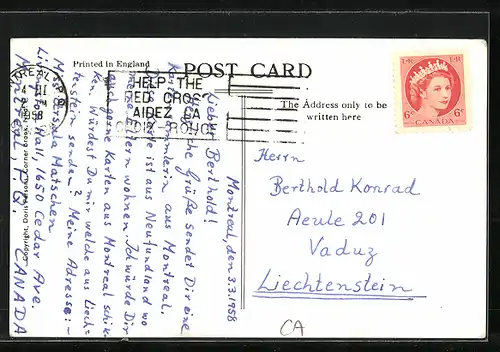 Printed in England
POST CARD
The Address only to be
written here
MONTREAL, P.Q.
III
1958
HELP THE
RED CROSS
AIDEZ LA
CROIX ROUGE
E II R E II R
6¢ CANADA 6¢
Montreal, den 3.3.1958
Lieber Berthold!
Herzliche Grüße sendet Dir eine
Kartensammlerin aus Montreal.
Diese Karte ist aus Neufundland wo
meine Eltern wohnen. Ich würde Dir
auch gerne Karten aus Montreal schik-
ken. Würdest Du mir welche aus Liech-
tenstein senden? Meine Adresse: –
Miss Ursula Matschen
Livingston Hall, 1650 Cedar Ave.
Montreal, P.Q. CANADA
Herrn
Berthold Konrad
Aeule 201
Vaduz
Liechtenstein
CA